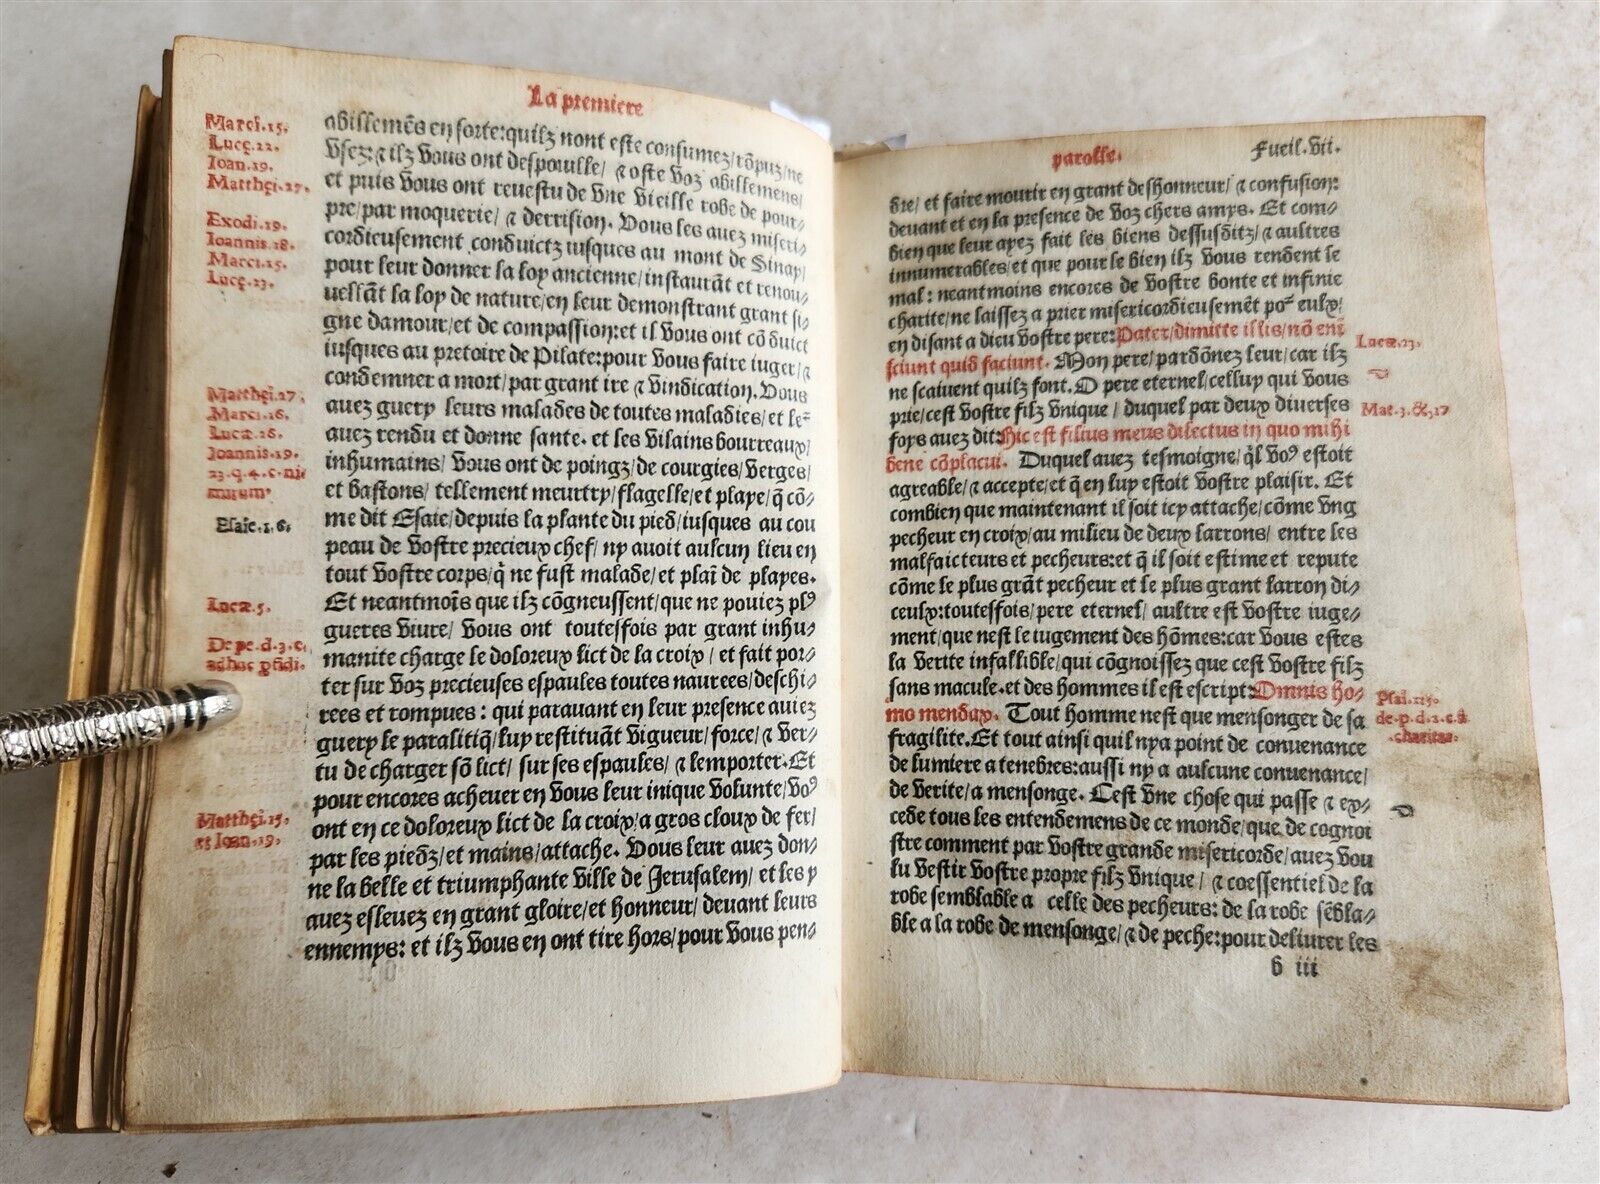 La premiere
Marci.15.
Lucę.22.
Ioan.19.
Matthęi.27.
Exodi.19.
Ioannis.18.
Marci.15.
Lucę.23.
Matthęi.27.
Marci.16.
Lucæ.16.
Ioannis.19.
23.q.4.c.
Esaie.1.6.
Lucæ.5.
De pe.d.3.c.
adhuc
Matthęi.15.
Ioan.19.
abillemēs en sorte:quilz nont este consumez/rōpuz/ne
vsez:⁊ ilz vous ont despouille/ ⁊ oste voz abillemens/
et puis vous ont reuestu de vne vieille robe de pour⸗
pre/par moquerie/ ⁊ derrision. Vous les auez miseri⸗
cordieusement conduictz iusques au mont de Sinay/
pour leur donner la loy ancienne/instaurāt et renou⸗
uellāt la loy de nature/en leur demonstrant grant si⸗
gne damour/et de compassion:et il vous ont cōduict
iusques au pretoire de Pilate:pour vous faire iuger/⁊
condemner a mort/par grant ire ⁊ vindication. Vous
auez guery leurs malades de toutes maladies/et le⸗
auez rendu et donne sante. et les vilains bourreaux/
inhumains/ vous ont de poingz/de courgies/verges/
et bastons/ tellement meurtry/flagelle/et playe/q̄ cō⸗
me dit Esaie/depuis la plante du pied/iusques au cou
peau de vostre precieux chef/ ny auoit aulcun lieu en
tout vostre corps/q̄ ne fust malade/et plaī de playes.
Et neantmoīs que ilz cōgneussent/que ne pouiez plꝰ
gueres viure/ vous ont toutesfois par grant inhu⸗
manite charge le doloreux lict de la croix/ et fait por⸗
ter sur voz precieuses espaules toutes naurees/deschi⸗
rees et rompues: qui parauant en leur presence auiez
guery le paralitiq̄/luy restituāt vigueur/force/⁊ ver⸗
tu de charger sō lict/ sur ses espaules/ ⁊ lemporter. Et
pour encores acheuer en vous leur inique volunte/voꝰ
ont en ce doloreux lict de la croix/a gros cloux de fer/
par les piedz/et mains/attache. Vous leur auez don⸗
ne la belle et triumphante ville de Jerusalem/ et les y
auez esleuez en grant gloire/et honneur/ deuant leurs
ennemys: et ilz vous en ont tire hors/pour vous pen⸗
parolle.
Fueil.vii.
dre/ et faire mourir en grant deshonneur/ ⁊ confusion:
deuant et en la presence de voz chers amys. Et com⸗
bien que leur ayez fait les biens dessusditz/⁊ aultres
innumerables/et que pour le bien ilz vous rendent le
mal: neantmoins encores de vostre bonte et infinie
charite/ne laissez a prier misericordieusemēt po᷑ eulx/
en disant a dieu vostre pere:Pater/dimitte illis/nō enī
sciunt quid faciunt. Mon pere/pardōnez leur/car ilz
ne scaiuent quilz font. O pere eternel/celluy qui vous
prie/cest vostre filz vnique/ duquel par deux diuerses
foys auez dit:Hic est filius meus dilectus in quo mihi
bene cōplacui. Duquel auez tesmoigne/q̄l voꝰ estoit
agreable/⁊ accepte/et q̄ en luy estoit vostre plaisir. Et
combien que maintenant il soit icy attache/cōme vng
pecheur en croix/au milieu de deux larrons/ entre les
malfaicteurs et pecheurs:et q̄ il soit estime et repute
cōme le plus grāt pecheur et le plus grant larron di⸗
ceulx:toutesfois/pere eternel/ aultre est vostre iuge⸗
ment/que nest le iugement des hōmes:car vous estes
la verite infallible/qui cōgnoissez que cest vostre filz
sans macule.et des hommes il est escript:Omnis ho⸗
mo mendax. Tout homme nest que mensonger de sa
fragilite.Et tout ainsi quil nya point de conuenance
de lumiere a tenebres:aussi ny a aulcune conuenance/
de verite/a mensonge. Cest vne chose qui passe ⁊ ex⸗
cede tous les entendemens de ce monde/que de cognoi
stre comment par vostre grande misericorde/auez vou
lu vestir vostre propre filz vnique/ ⁊ coessentiel de la
robe semblable a celle des pecheurs: de la robe sēbla⸗
ble a la robe de mensonge/⁊ de peche:pour deliurer les
b iii
Lucæ.23.
Mat.3.&.17
Psal.115.
de.p.d.2.c.
charitas.